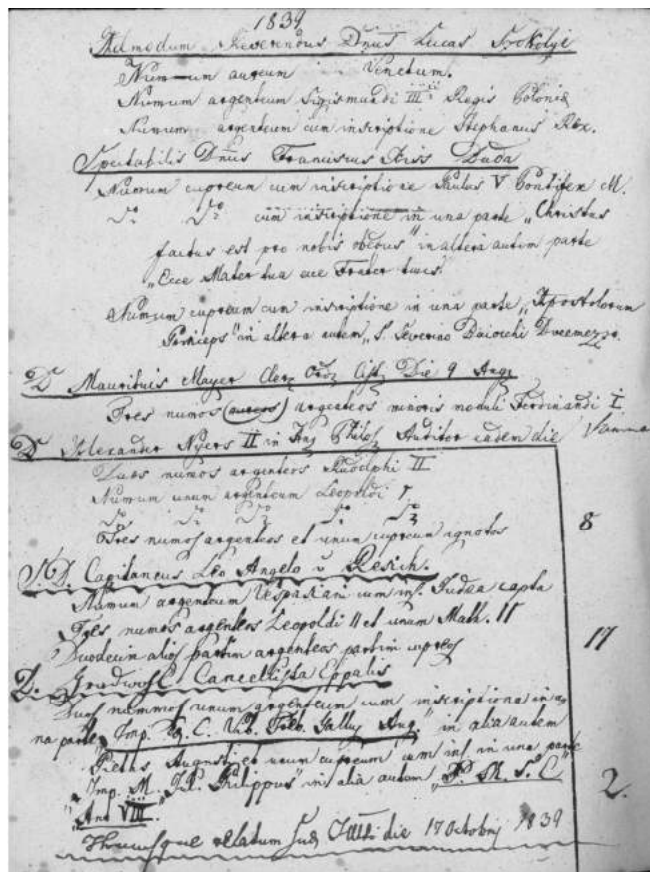 1839
Admodum Reverendus Dnus Lucas
Numum aureum Venetum.
Numum argenteum Sigismundi III Regis Poloniae
Numum argenteum cum inscriptione Stephanus Rex.
Spectabilis Dnus Franciscus Kiss Duda
Numum cupreum cum inscriptione Paulus V Pontifex M.
do do cum inscriptione in una parte „Christus
factus est pro nobis obediens" in altera autem parte
„Ecce Mater tua ecce Frater tuus"
Numum cupreum cum inscriptione in una parte „Apostolorum
Princeps" in altera autem „S. Severino Baiocchi Dueemezzo.
D Mauritius Mayer Cler Ord Cist Die 9 Aug
Tres numos (aureos) argenteos minoris moduli Ferdinandi I
D Alexander Nyers II in Philos Auditor eadem die
Duos numos argenteos Rudolphi II
Numum unum argenteum Leopoldi I
do do do do do
Tres numos argenteos et unum cupreum ignotos 8
S. D. Capitaneus Leo Angelo v Resich.
Numum argenteum Vespasiani cum ins. Judea capta
Tres numos argenteos Leopoldi II et unum Math. II
Duodecim alios partim argenteos partim cupreos 17
D. Cancellista Eppalis
Duos nummos unum argenteum cum inscriptione in u-
na parte „Imp. C. C. Vib. Treb. Gallus Aug." in alia autem
Pietas Augusti et unum cupreum cum ins in una parte
„Imp. M. Jul. Philippus" in alia autem „P. M. S. C 2.
„An VIII."
Hucusque relatum sub die 17 Octobris 1839